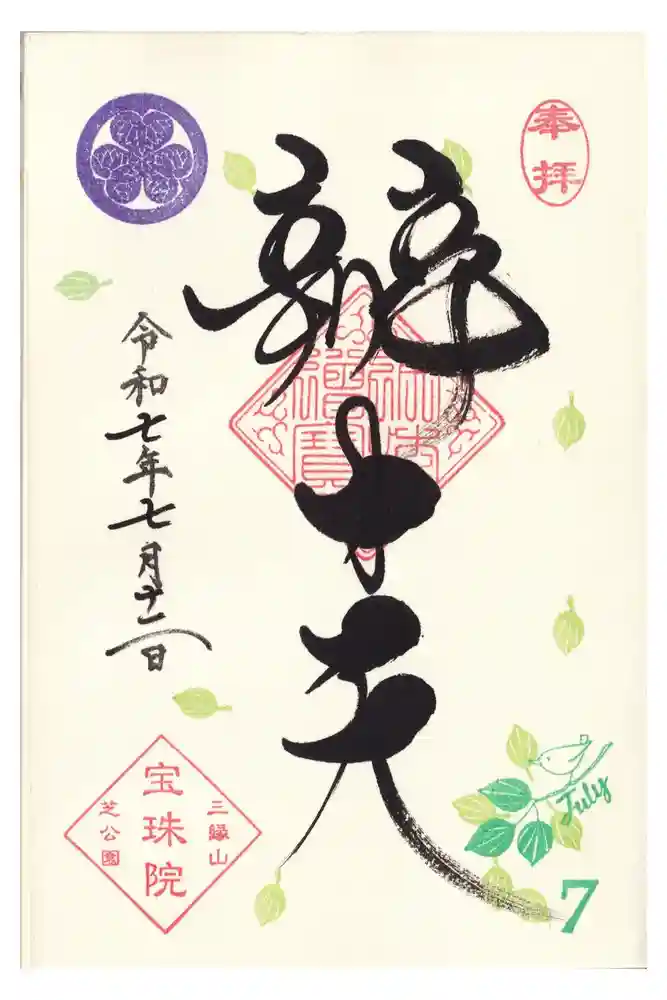 奉拝
辨才天
令和七年七月十二日
三縁山
宝珠院
芝公園
July
7